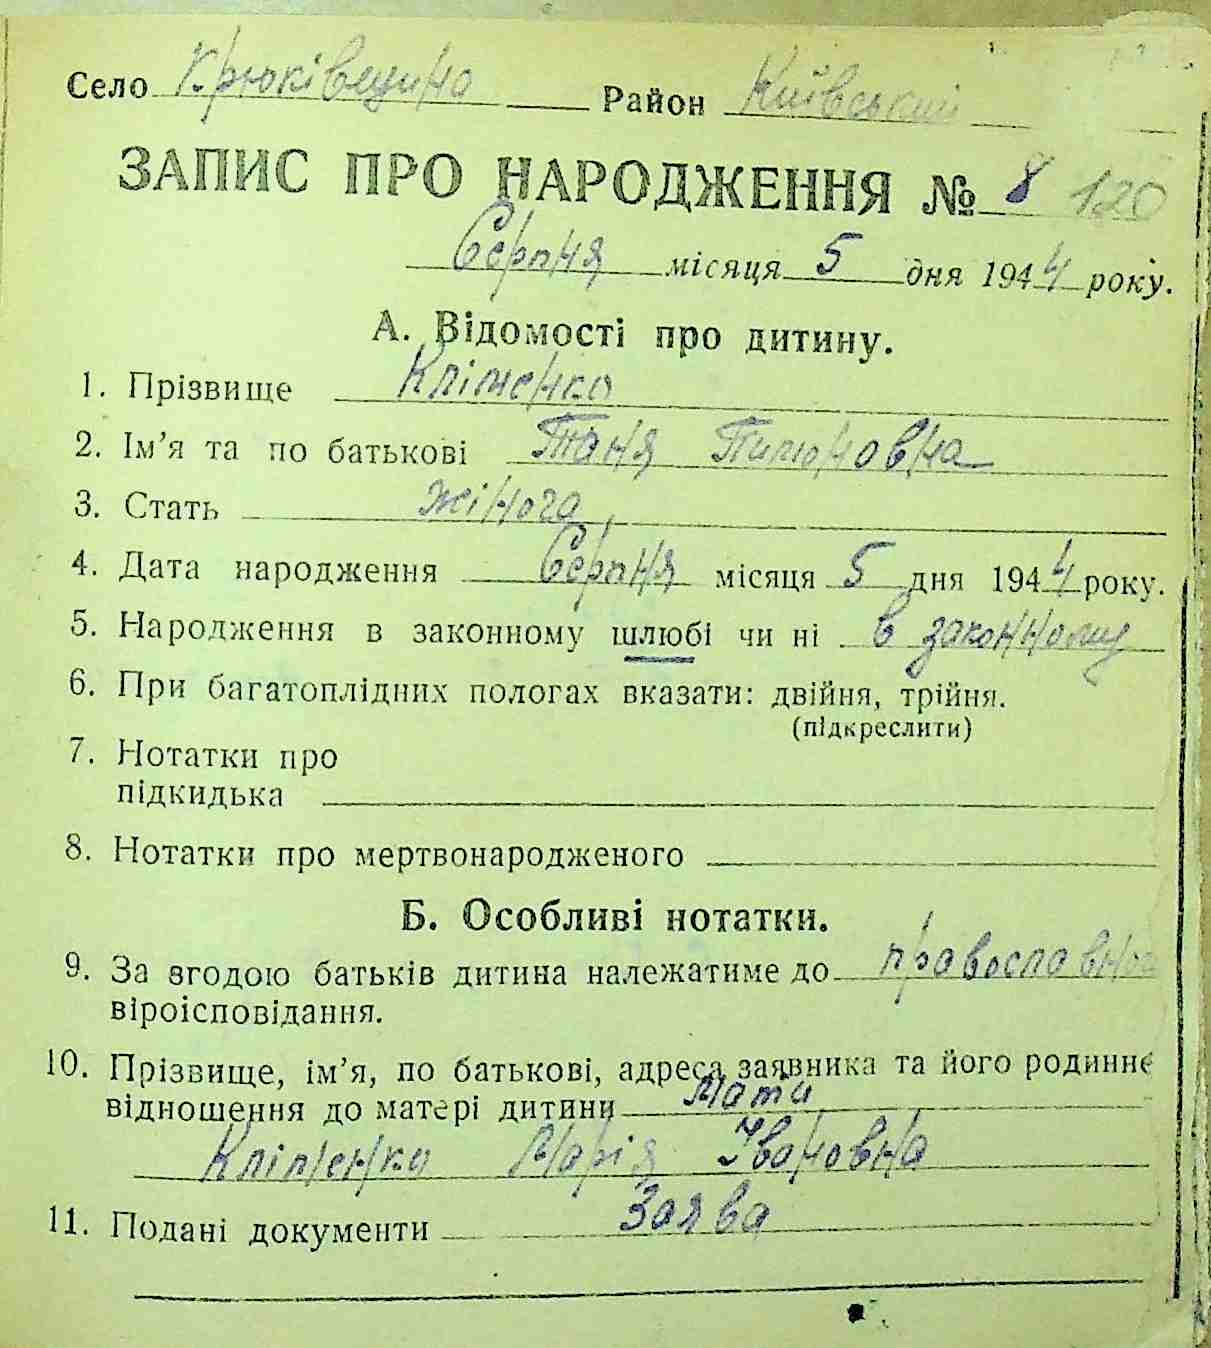 Село Крюківщина Район Київський
ЗАПИС ПРО НАРОДЖЕННЯ № 8 120
Серпня місяця 5 дня 1944 року.
А. Відомості про дитину.
1. Прізвище Кліменко
2. Ім’я та по батькові Таня Пилиповна
3. Стать жіноча
4. Дата народження Серпня місяця 5 дня 1944 року.
5. Народження в законному шлюбі чи ні в законному
6. При багатоплідних пологах вказати: двійня, трійня.
(підкреслити)
7. Нотатки про
підкидька
8. Нотатки про мертвонародженого
Б. Особливі нотатки.
9. За згодою батьків дитина належатиме до православного
віроісповідання.
10. Прізвище, ім’я, по батькові, адреса заявника та його родинне
відношення до матері дитини Мати
Кліменко Марія Івановна
11. Подані документи Заява